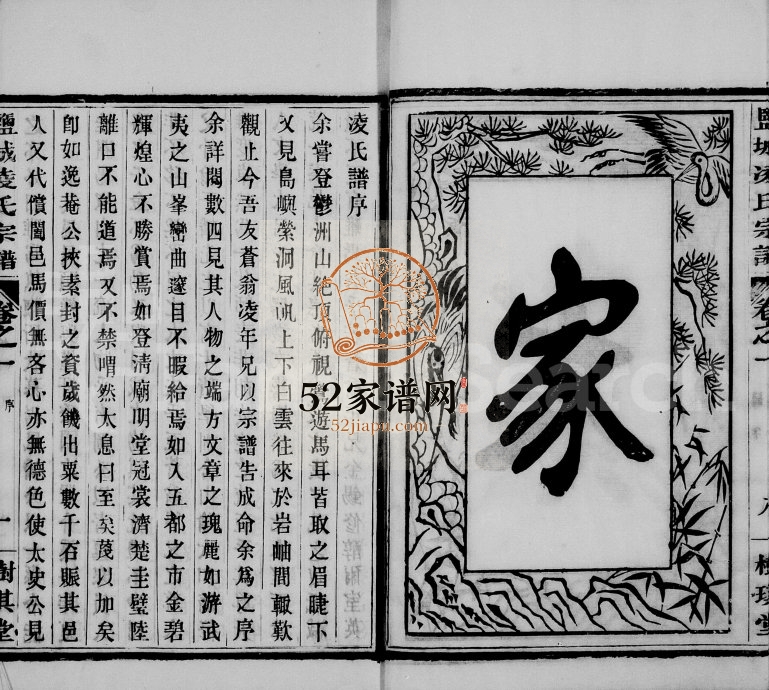 鹽城凌氏宗譜
卷之一
樹琪堂
家
凌氏譜序
余嘗登鬱洲山絕頂俯視遊馬耳皆取之眉睫下
又見島嶼縈洄風帆上下白雲往來於岩岫間輒歎
觀止今吾友蒼翁凌年兄以宗譜告成命余為之序
余詳閱數四見其人物之端方文章之瑰麗如游武
夷之山峯巒曲邃目不暇給焉如入五都之市金碧
輝煌心不勝賞焉如登清廟明堂冠裳濟楚圭璧陸
離口不能道焉又不禁喟然太息曰至矣蔑以加矣
卽如逸菴公挾素封之貲歲饑出粟數千石賑其邑
人又代償闔邑馬價無吝心亦無德色使太史公見
鹽城凌氏宗譜
卷之一
序
一
樹其堂
52家谱网
52jiapu.com